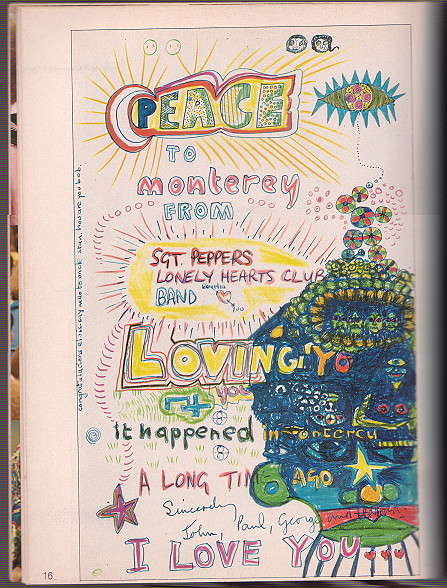 PEACE
TO
monterey
FROM
SGT PEPPERS
LONELY HEARTS CLUB
BAND
you
LOVING YO
you
it happened in monterey
A LONG TIME AGO
Sincerely
John, Paul, George and
I LOVE YOU
16
congratulations